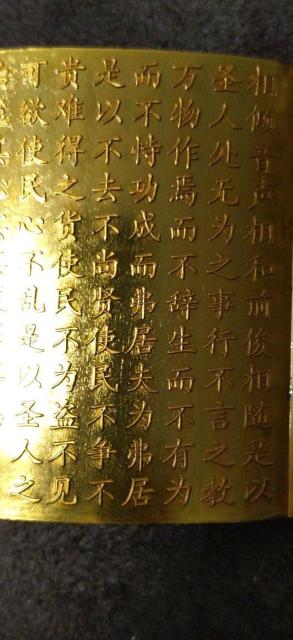 相倾音声相和前俊相随是以
圣人处无为之事行不言之教
万物作焉而不辞生而不有为
而不特功成而弗居夫为弗居
是以不去不尚贤使民不争不
贵难得之货使民不为盗不见
可欲使民心不乱是以圣人之